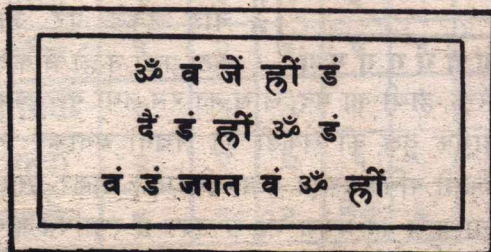 ॐ वं जें ह्लीं डं
दैं डं ह्लीं ॐ डं
वं डं जगत वं ॐ ह्लीं